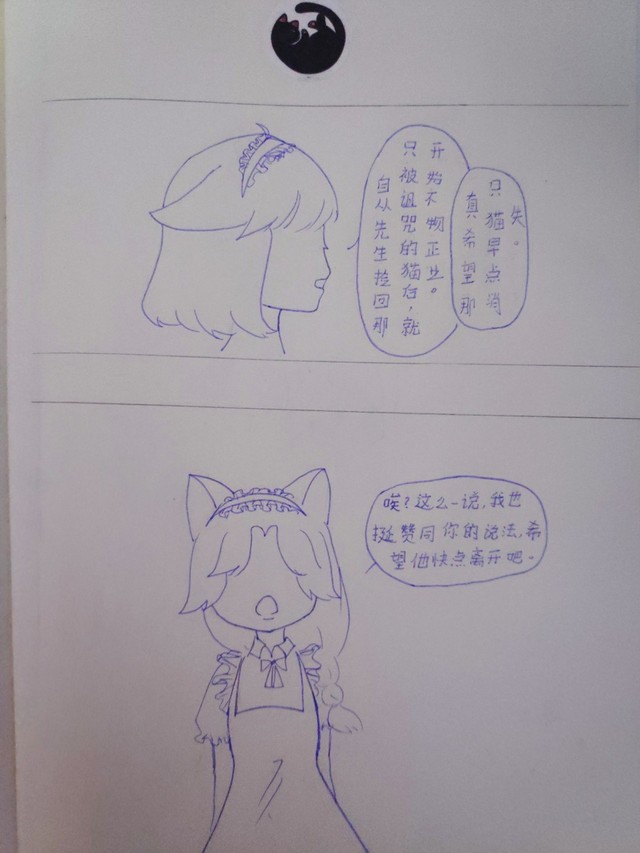 自从先生捡回那
只被诅咒的猫后,就
开始不物正业。
真希望那
只猫早点消
失。
唉?这么一说,我也
挺赞同你的说法,希
望他快点离开吧。